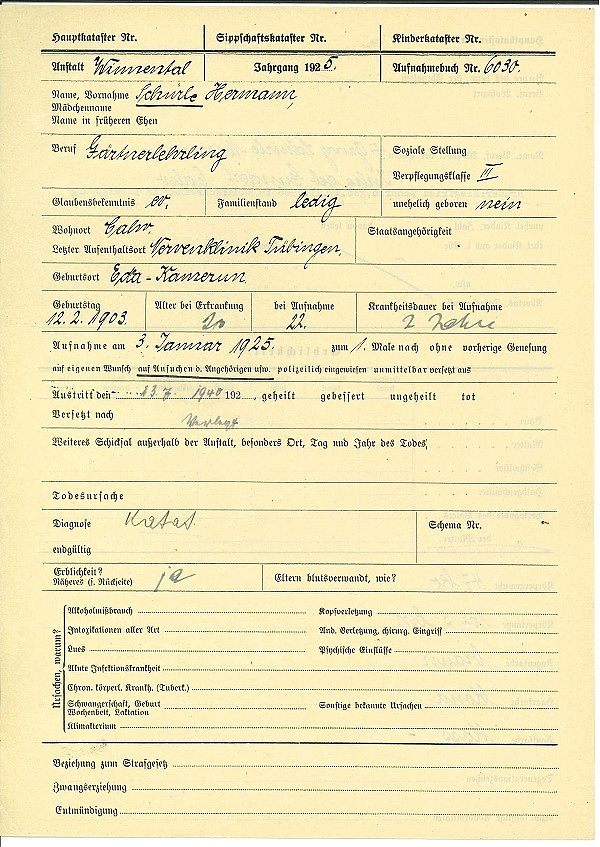 Hauptkataster Nr. Sippschaftskataster Nr. Kinderkataster Nr.
Anstalt Winnental Jahrgang 1925. Aufnahmebuch Nr. 6030.
Name, Vorname Schürle Hermann,
Mädchenname
Name in früheren Ehen
Beruf Gärtnerlehrling Soziale Stellung
Verpflegungsklasse III
Glaubensbekenntnis ev. Familienstand ledig unehelich geboren nein
Wohnort Calw. Staatsangehörigkeit
Letzter Aufenthaltsort Nervenklinik Tübingen.
Geburtsort Eda - Kamerun.
Geburtstag Alter bei Erkrankung bei Aufnahme Krankheitsdauer bei Aufnahme
12.2.1903. 20 22. 2 Jahre
Aufnahme am 3. Januar 1925. zum 1. Male nach ohne vorherige Genesung
auf eigenen Wunsch auf Ansuchen d. Angehörigen usw. polizeilich eingewiesen unmittelbar versetzt aus
Austritt den 23.7.1940 192 , geheilt gebessert ungeheilt tot
Versetzt nach Verlegt
Weiteres Schicksal außerhalb der Anstalt, besonders Ort, Tag und Jahr des Todes,
Todesursache
Diagnose Katat. Schema Nr. -
endgültig
Erblichkeit? ja Eltern blutsverwandt, wie?
Näheres (s. Rückseite)
Ursachen, warum?
Alkoholmißbrauch Kopfverletzung
Intoxikationen aller Art And. Verletzung, chirurg. Eingriff
Lues Psychische Einflüsse
Akute Infektionskrankheit
Chron. körperl. Krankh. (Tuberk.)
Schwangerschaft, Geburt Sonstige bekannte Ursachen
Wochenbett, Laktation
Klimakterium
Beziehung zum Strafgesetz
Zwangserziehung
Entmündigung